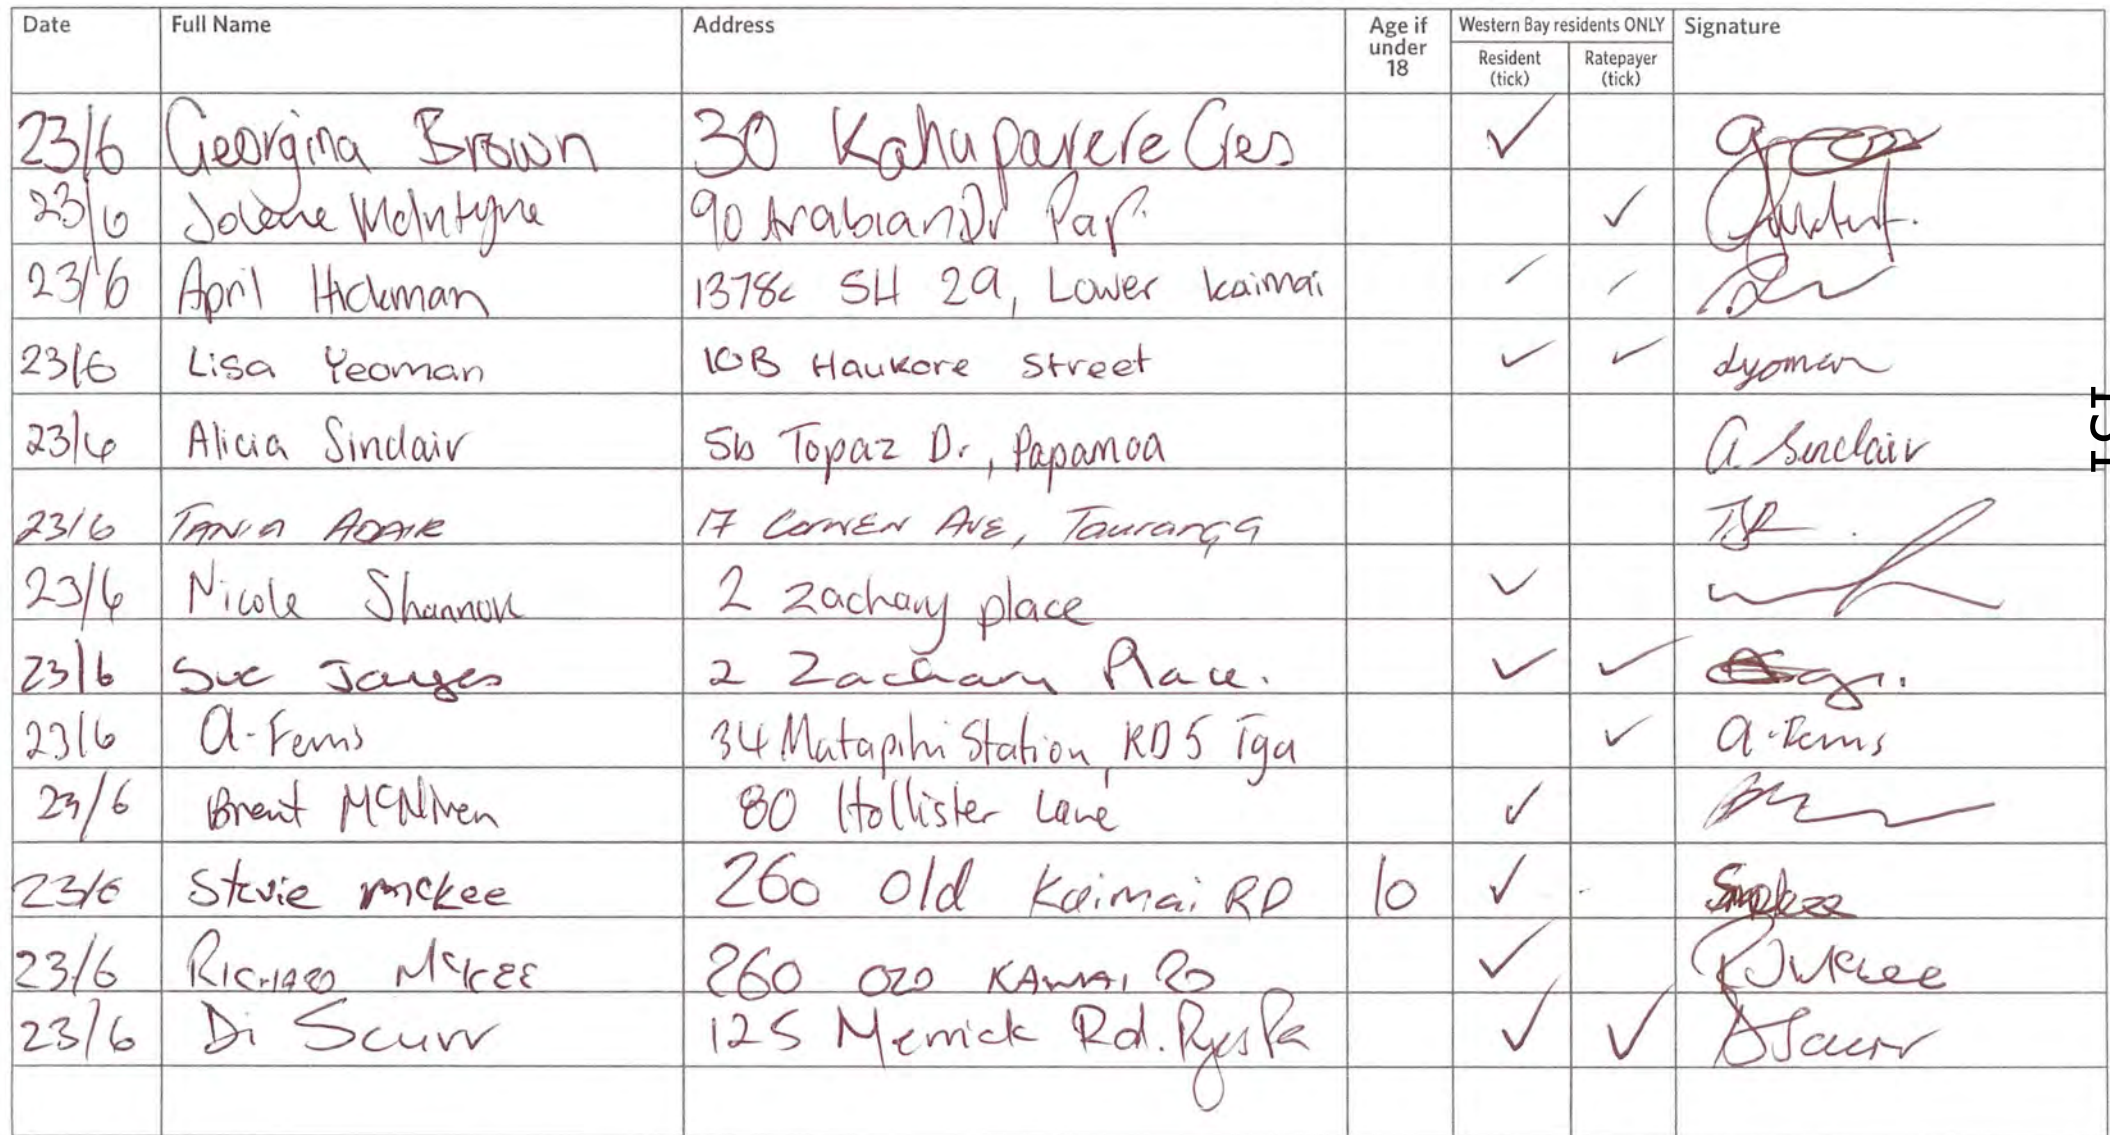 Date Full Name Address Age if under 18 Western Bay residents ONLY Signature
Resident (tick) Ratepayer (tick)
23/6 Georgina Brown 30 Kahuparere Cres ✓
23/6 Jolene McIntyre 90 Arabian Dr Pap. ✓
23/6 April Hickman 1378c SH 29, Lower Kaimai ✓ ✓
23/6 Lisa Yeoman 10B Haukore Street ✓ ✓ Lyoman
23/6 Alicia Sinclair 56 Topaz Dr, Papamoa A Sinclair
23/6 TANIA ADAIR 17 Ave, Tauranga
23/6 Nicole Shannon 2 Zachary place ✓
23/6 Sue 2 Zachary Place. ✓ ✓
23/6 A-Ferris 34 Matapihi Station, RD5 Tga ✓ A-Ferris
23/6 Brent McNiven 80 Hollister Lane ✓
23/6 Stevie mckee 260 old Kaimai RD 10 ✓ Smckee
23/6 RICHARD McKEE 260 OLD KAIMAI RD ✓ RJMcKee
23/6 Di Scurr 125 Merrick Rd. ✓ ✓ DScurr
151